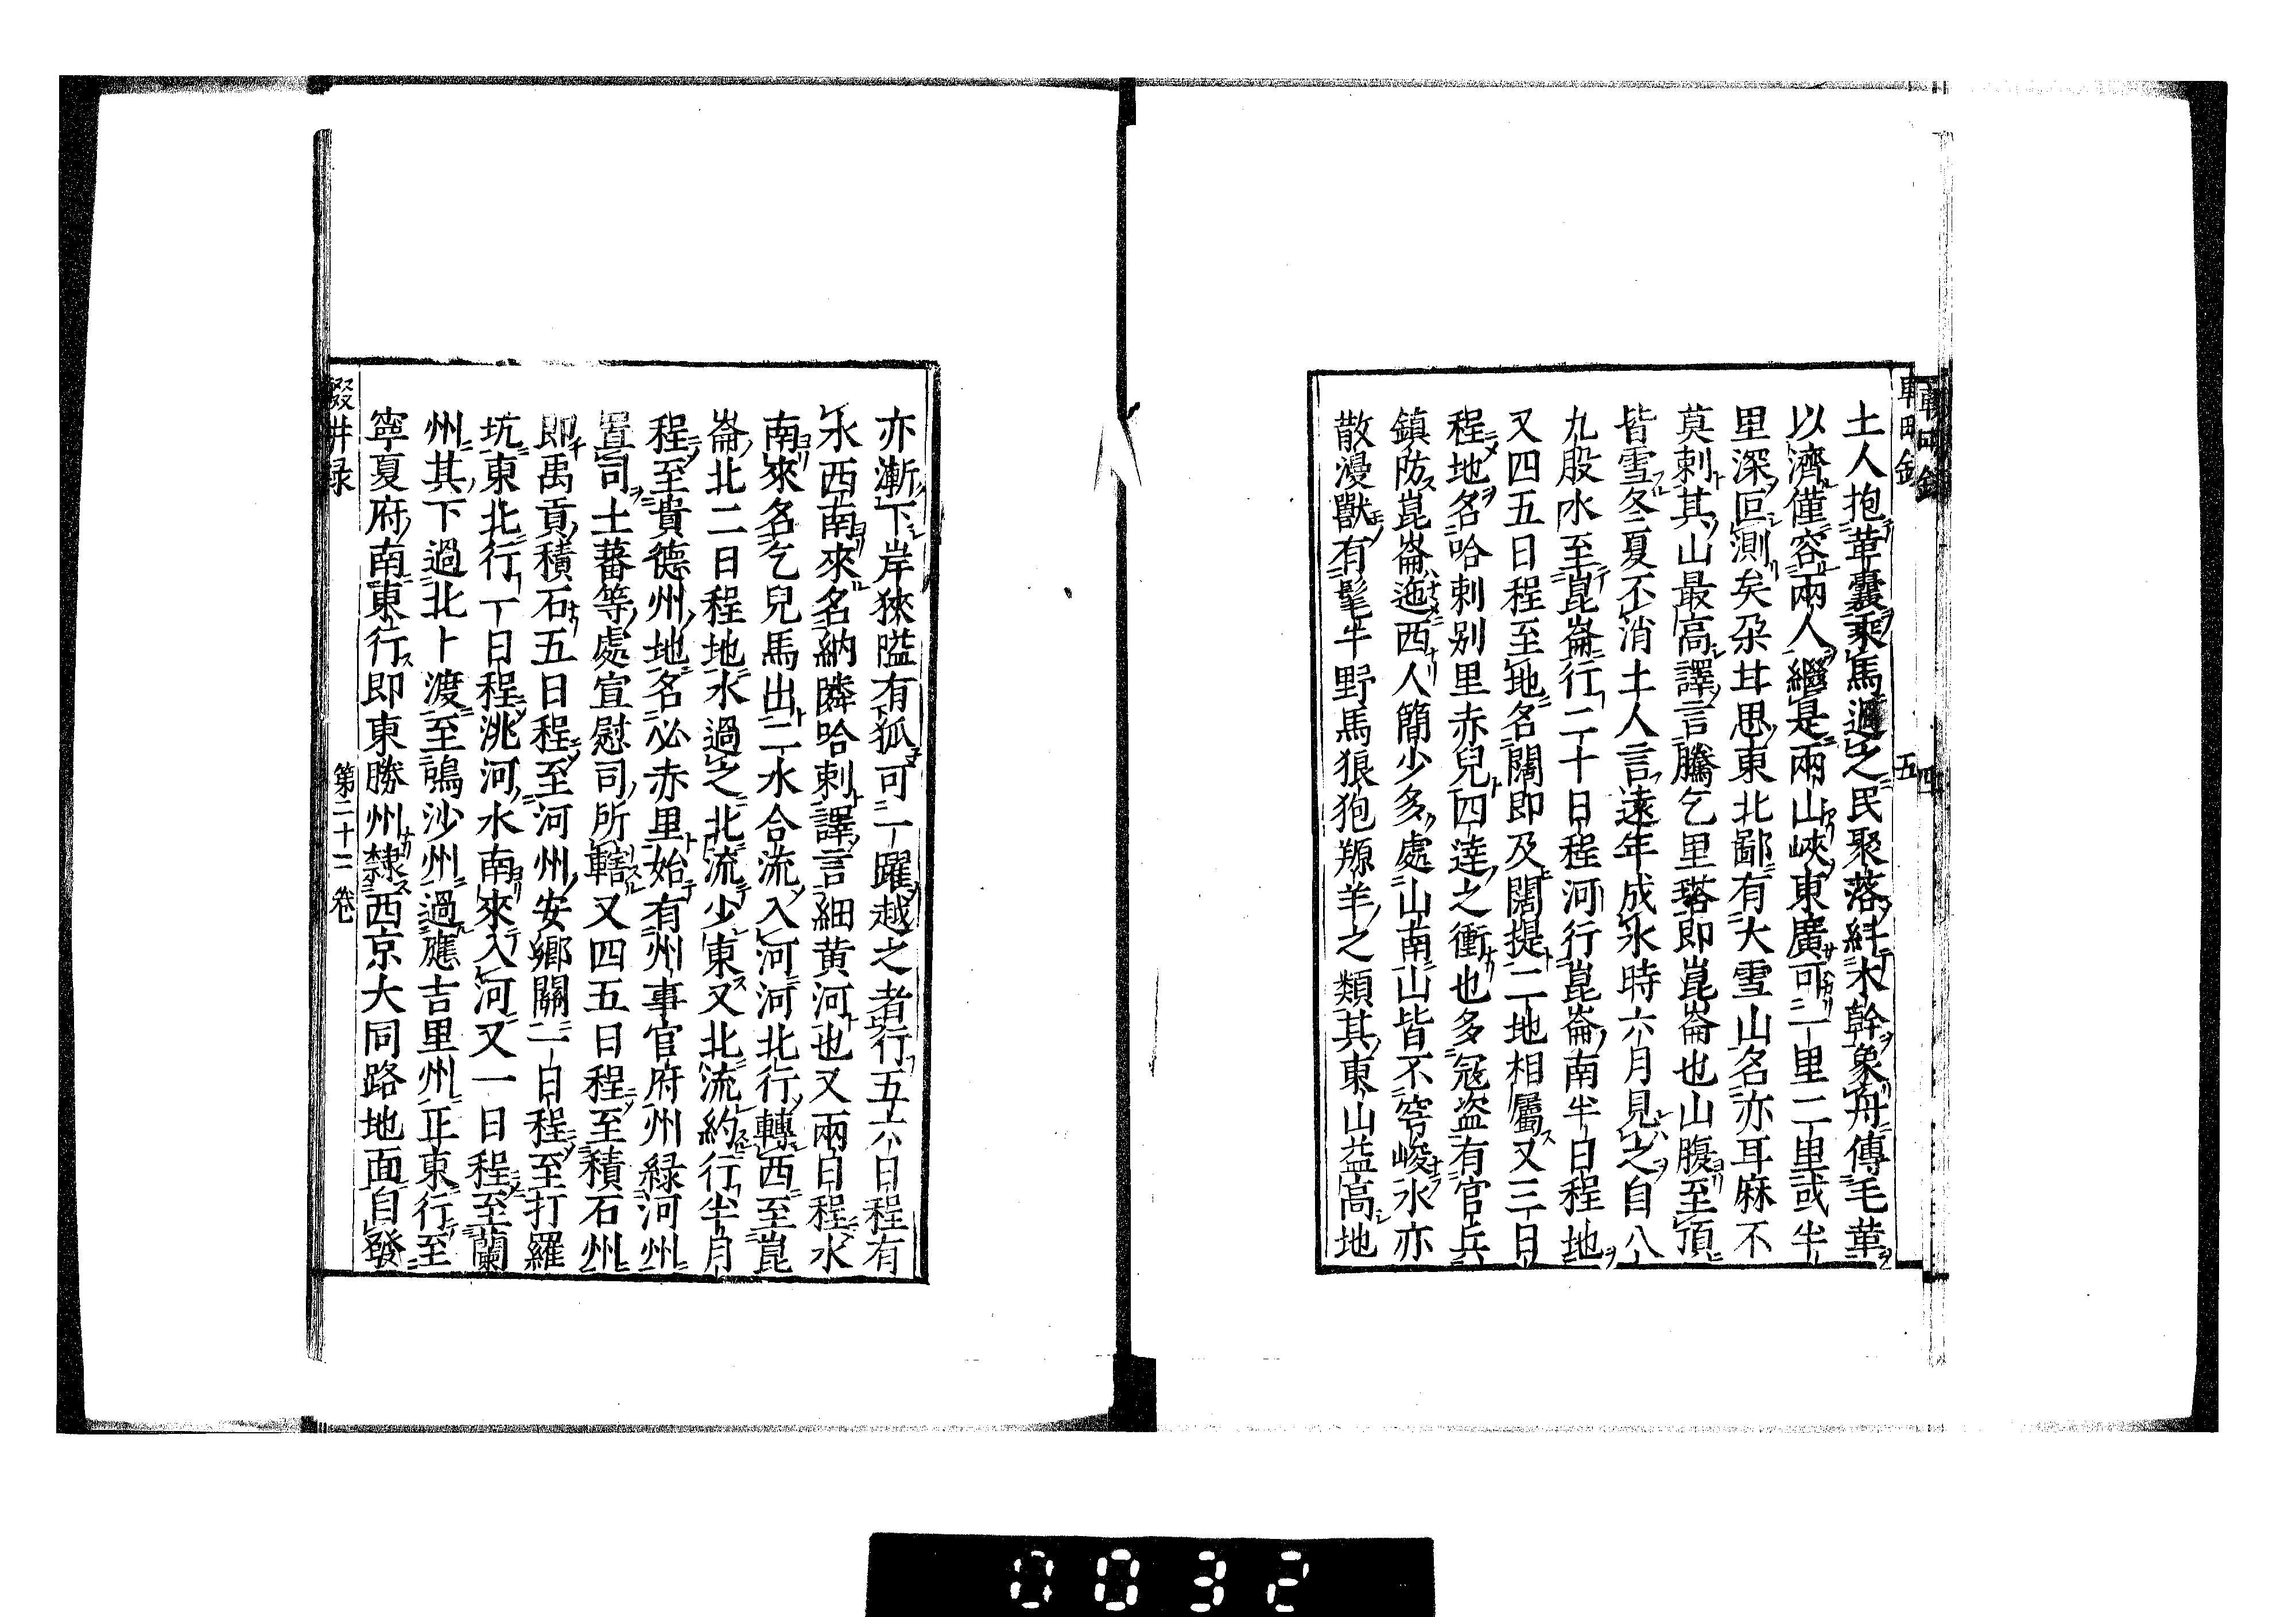 土人抱革囊乘馬過之民聚落糾木幹象舟傳毛革
以濟僅容兩人繼是兩山峽東廣可一里二里或半
里深叵測矣朶甘思東北鄙有大雪山名亦耳麻不
莫剌其山最高譯言騰乞里塔即崑崙也山腹至頂
皆雪冬夏不消土人言遠年成氷時六月見之自八
九股水至崑崙行二十日程河行崑崙南半日程地
又四五日程至地名闊即及闊提二地相屬又三日
程地名哈剌別里赤兒四達之衝也多冦盗有官兵
鎮防崑崙迤西人簡少多處山南山皆不穹峻水亦
散漫獸有髦牛野馬狼狍羱羊之類其東山益高地
五
四
亦漸下岸狹隘有狐可一躍越之者行五六日程有
水西南來名納隣哈剌譯言細黄河也又兩日程水
南來名乞兒馬出二水合流入河河北行轉西至崑
崙北二日程地水過之北流少東又北流約行半月
程至貴德州地名必赤里始有州事官府州緑河州
置司土蕃等處宣慰司所轄又四五日程至積石州
即禹貢積石五日程至河州安鄉關一日程至打羅
坑東北行一日程洮河水南來入河又一日程至蘭
州其下過北卜渡至鳴沙州過應吉里州正東行至
寧夏府南東行即東勝州隸西京大同路地面自發
輟耕録
第二十二卷
0032